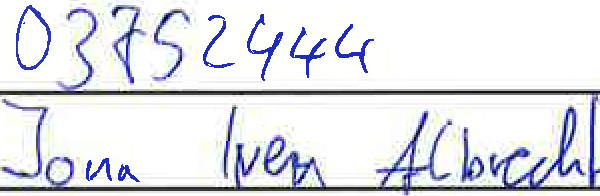 03752444
Jona Iven Albrecht